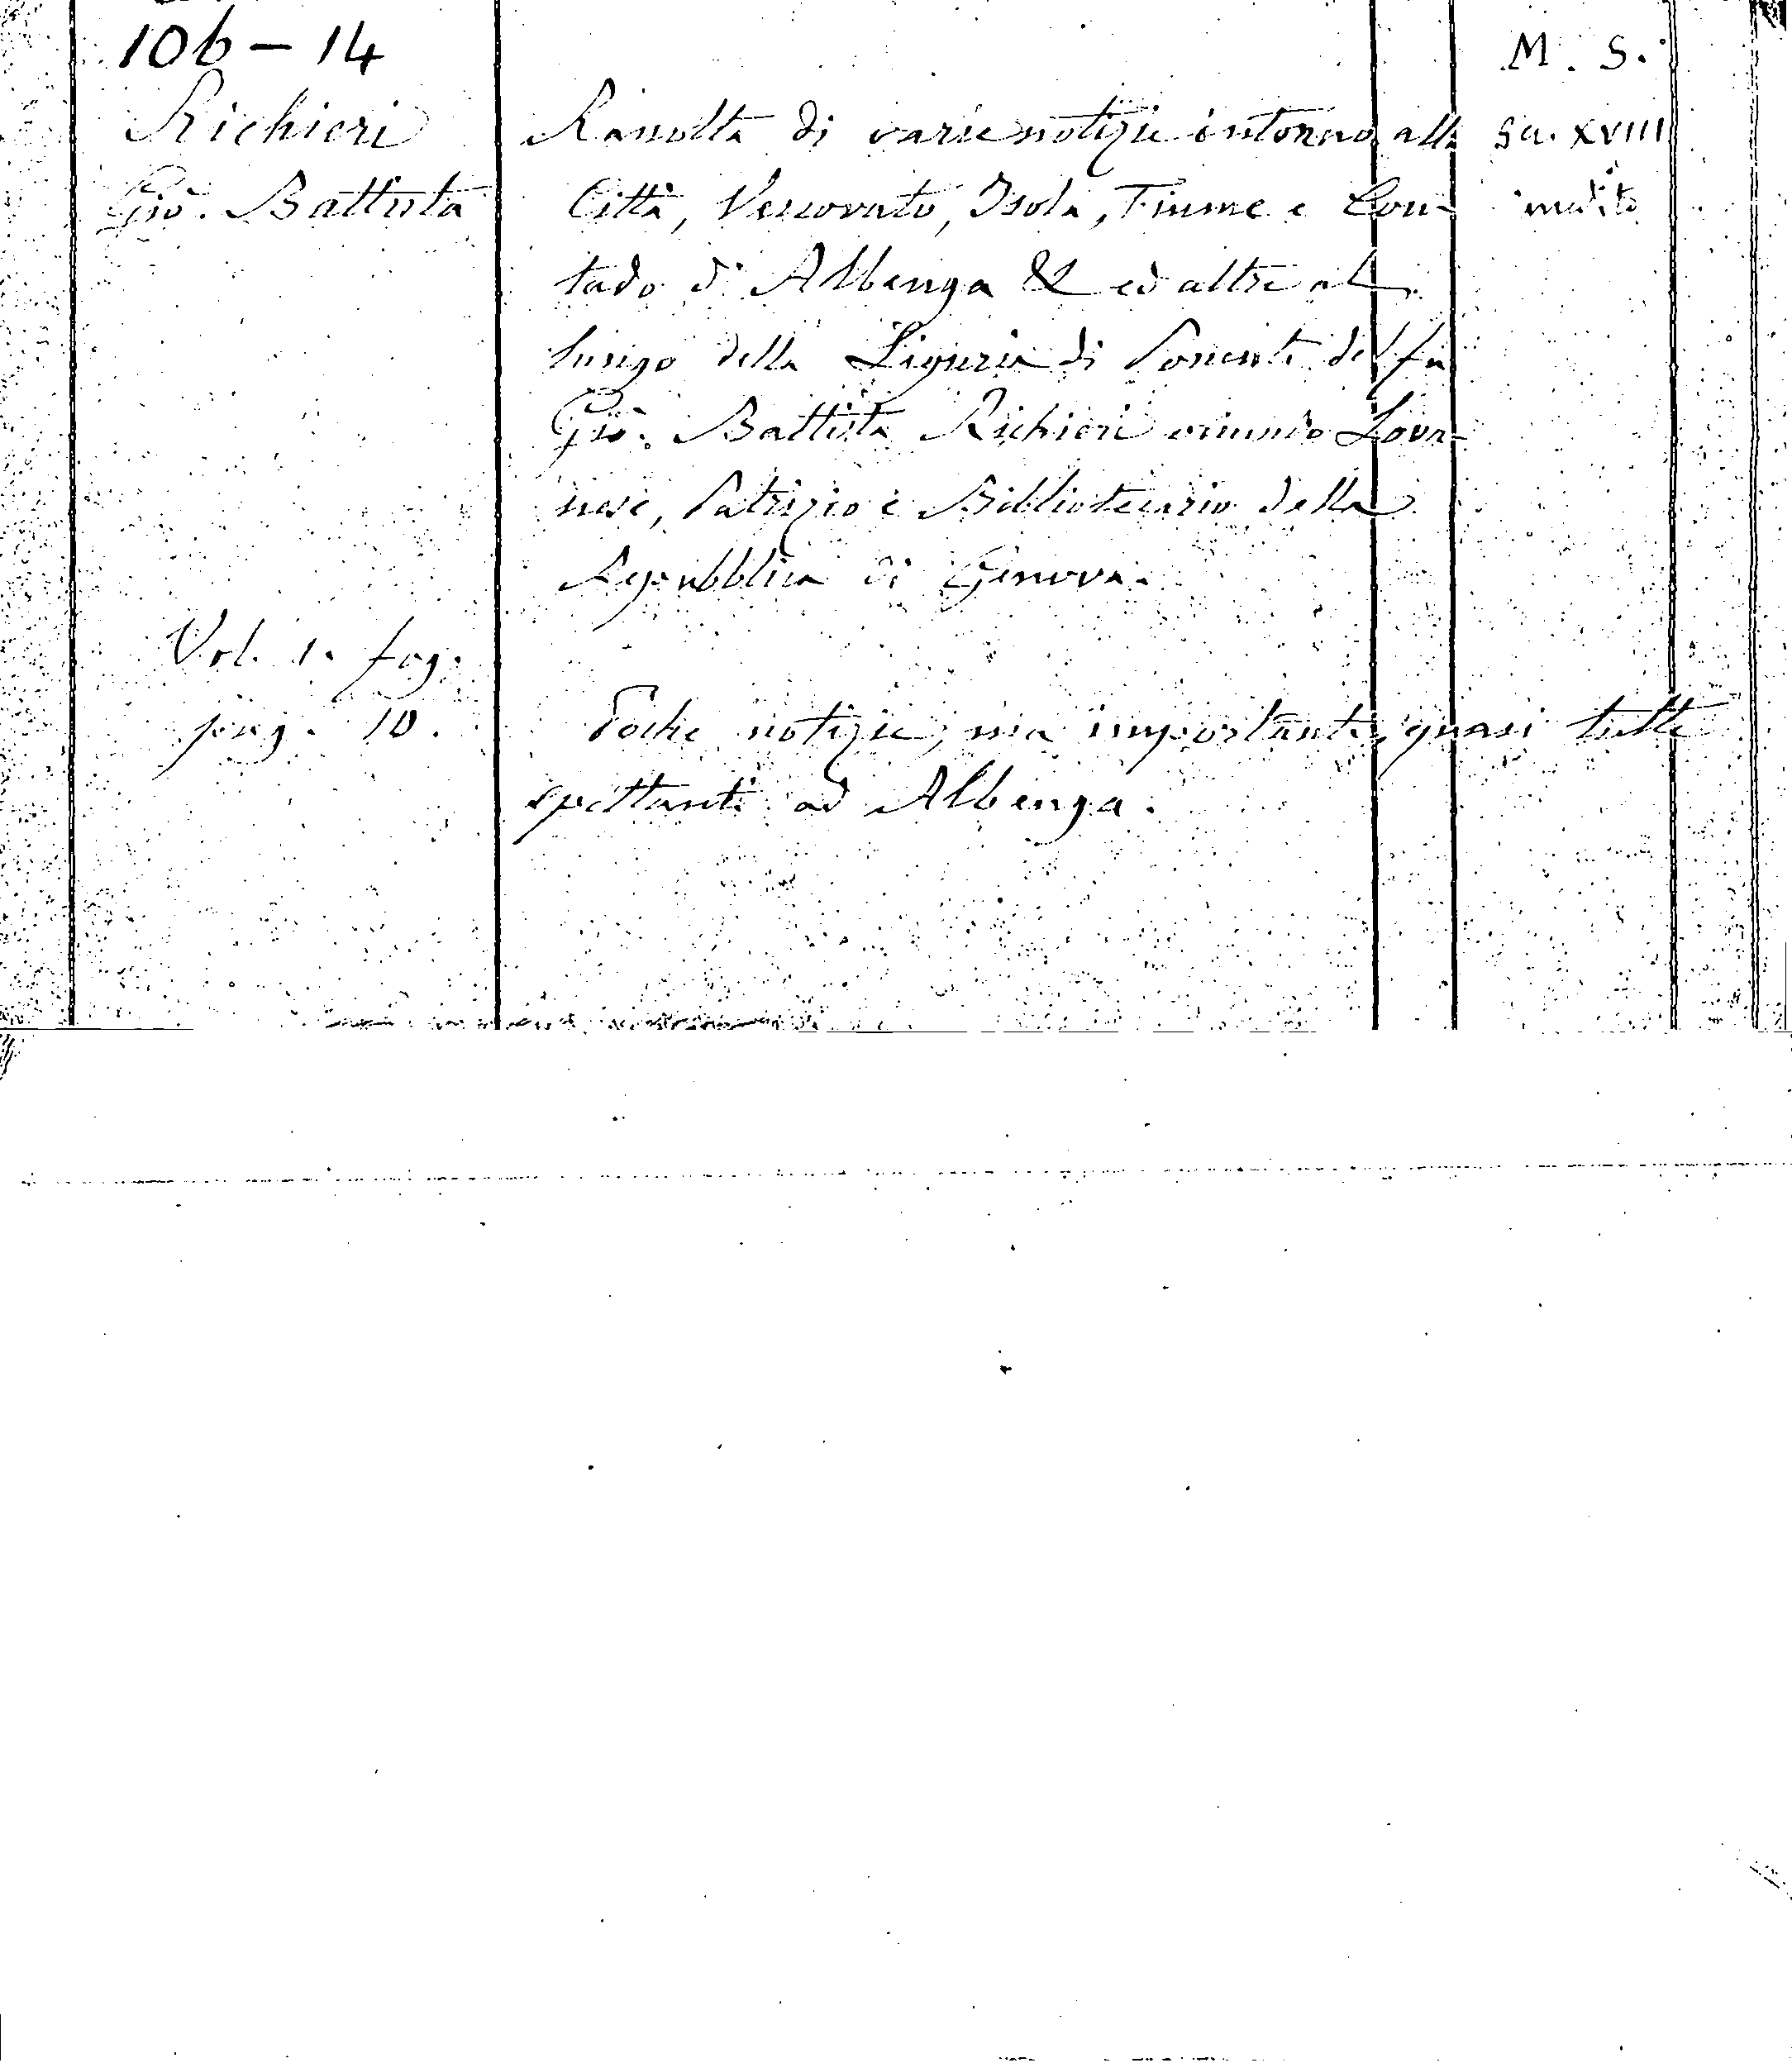 106 – 14
Richieri
Gio. Battista
Vol. 1. fog.
pag. 10.
Raccolta di varie notizie intorno alla
Città, Vescovato, Isola, Fiume e Con-
tado d'Albenga & ed altre al
lungo della Liguria di Ponente del fu
Gio. Battista Richieri oriundo Loa-
nese, Patrizio e Bibliotecario della
Repubblica di Genova.
Poche notizie, ma importanti, quasi tutte
spettanti ad Albenga.
M. S.
Sec. XVIII
inedito